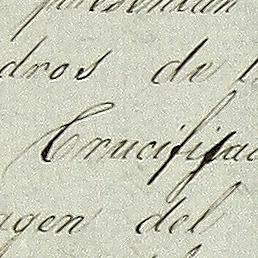 dros de l
Crucifijad
agen del